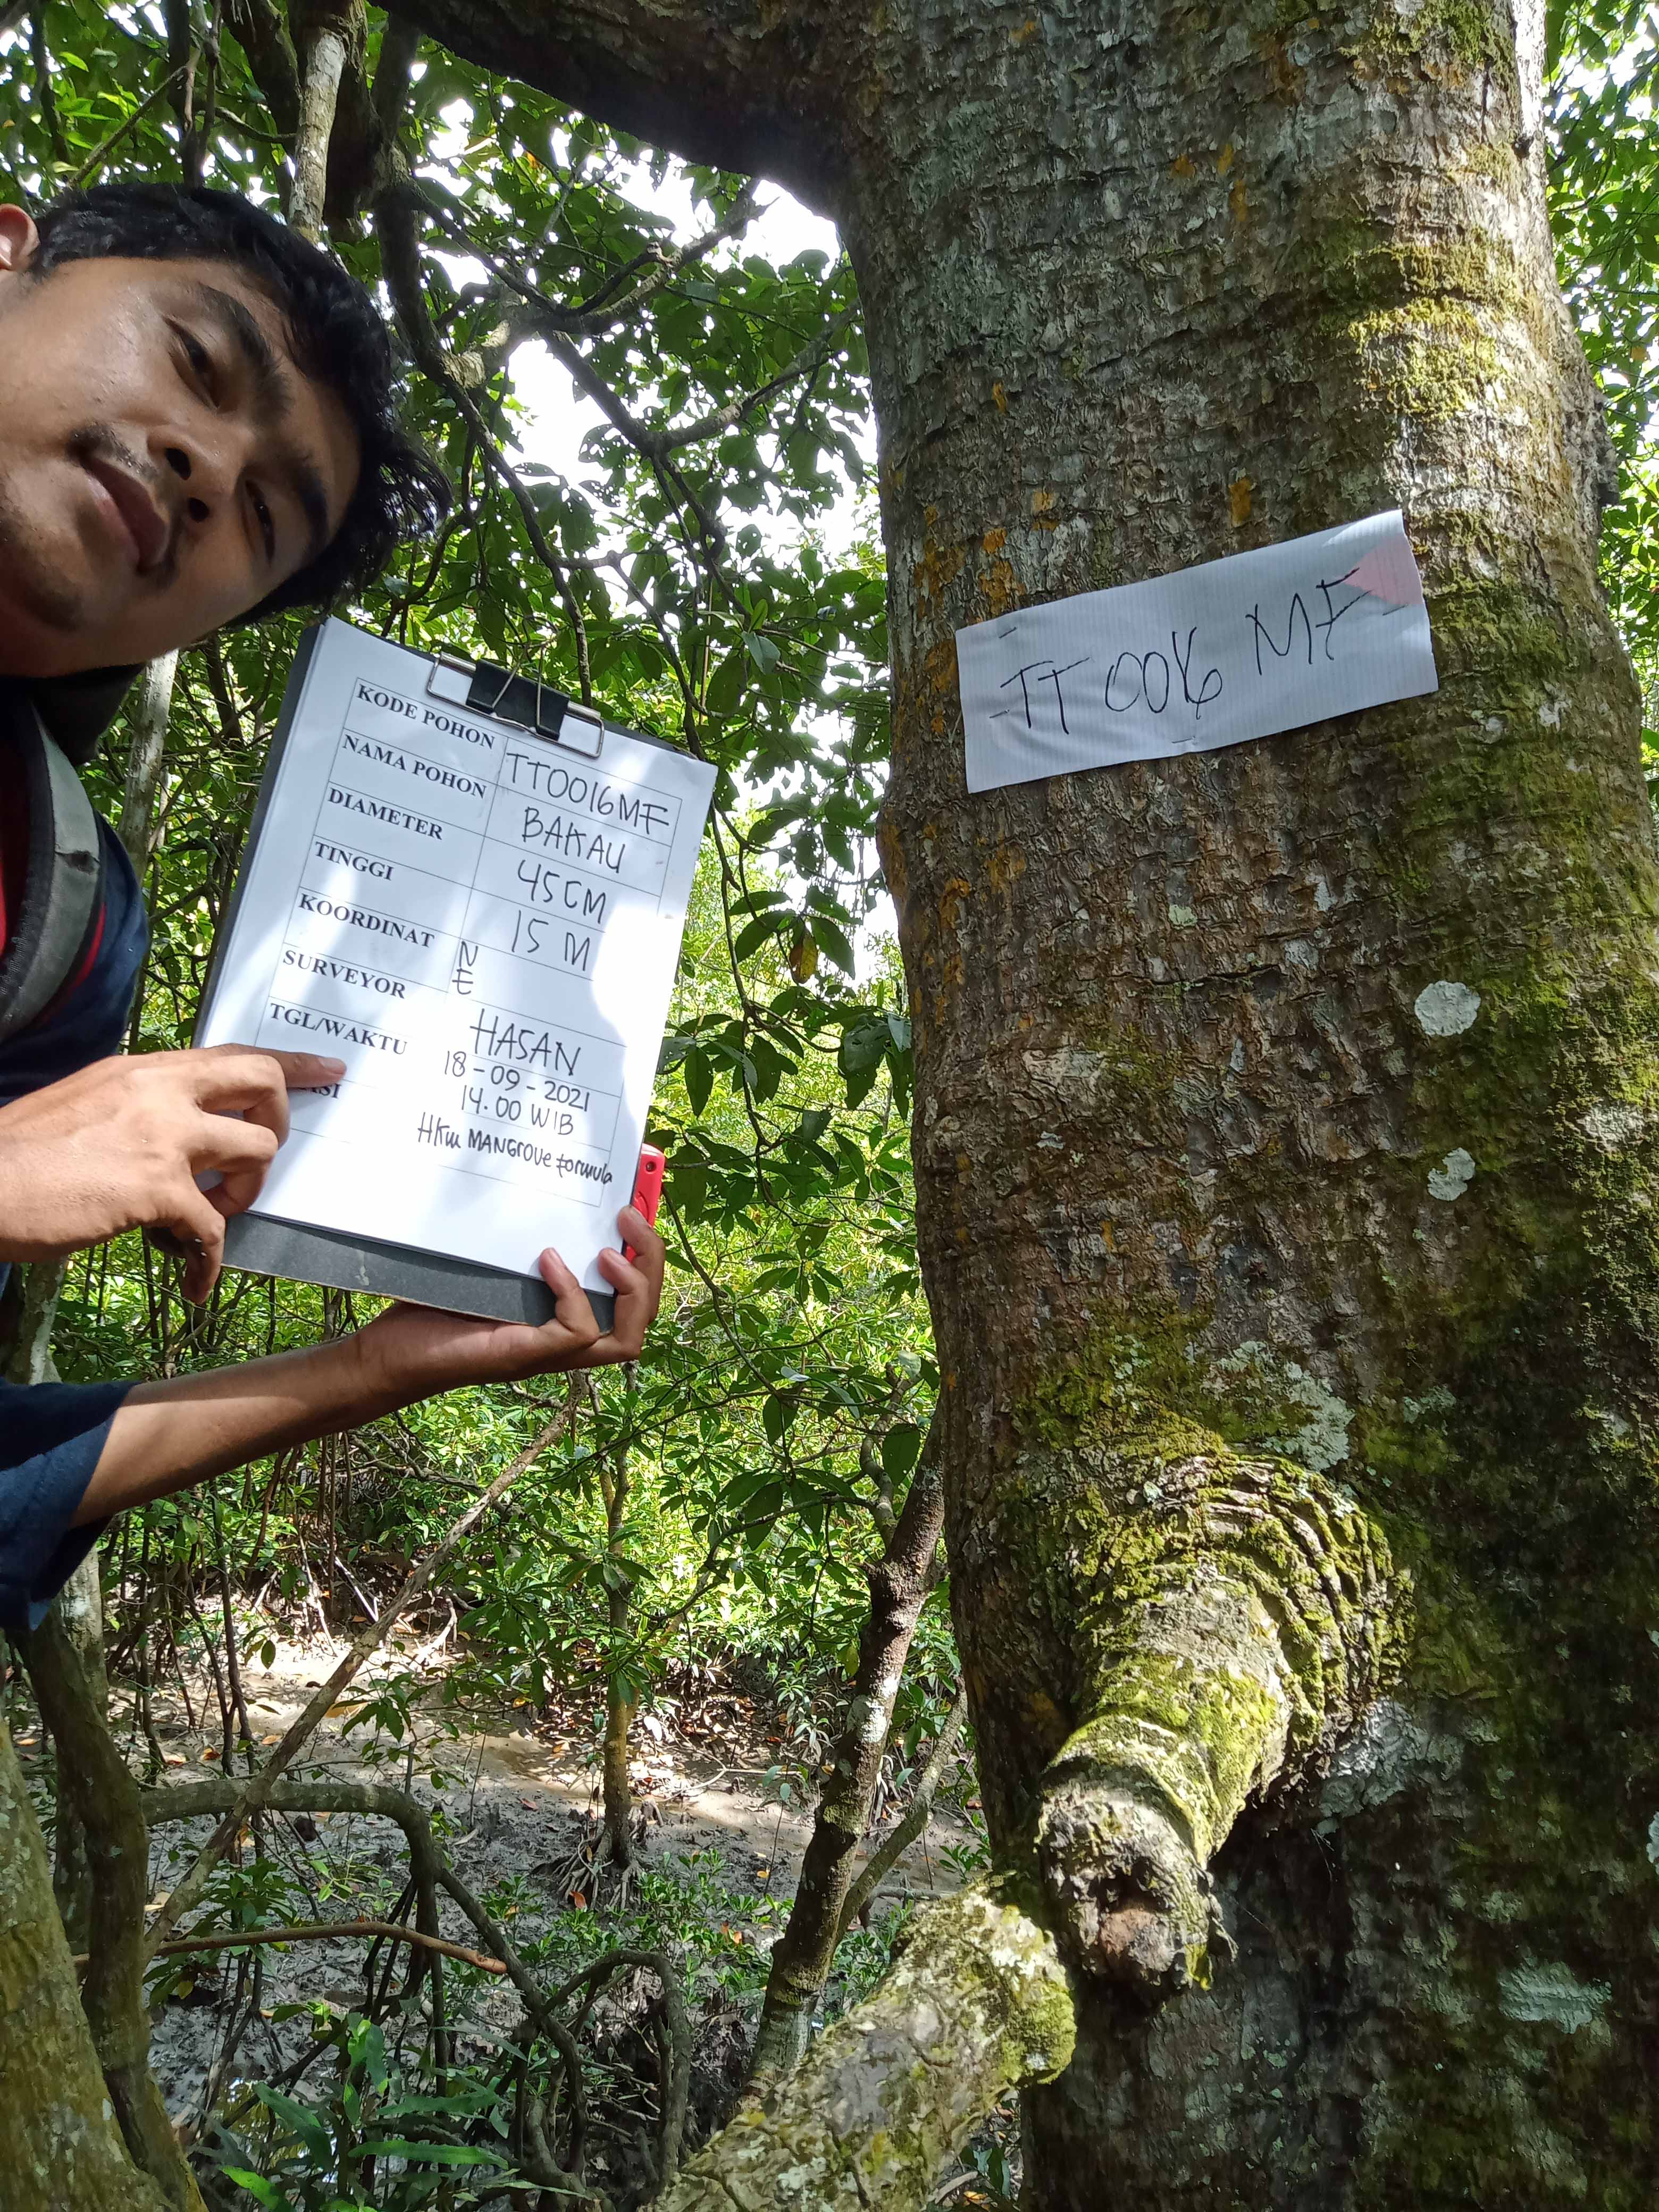 KODE POHON TT0016MF
NAMA POHON BAKAU
DIAMETER 45CM
TINGGI 15 M
KOORDINAT N
E
SURVEYOR HASAN
TGL/WAKTU 18-09-2021
14.00 WIB
ASI HKm MANGROVE formula
TT 0016 MF